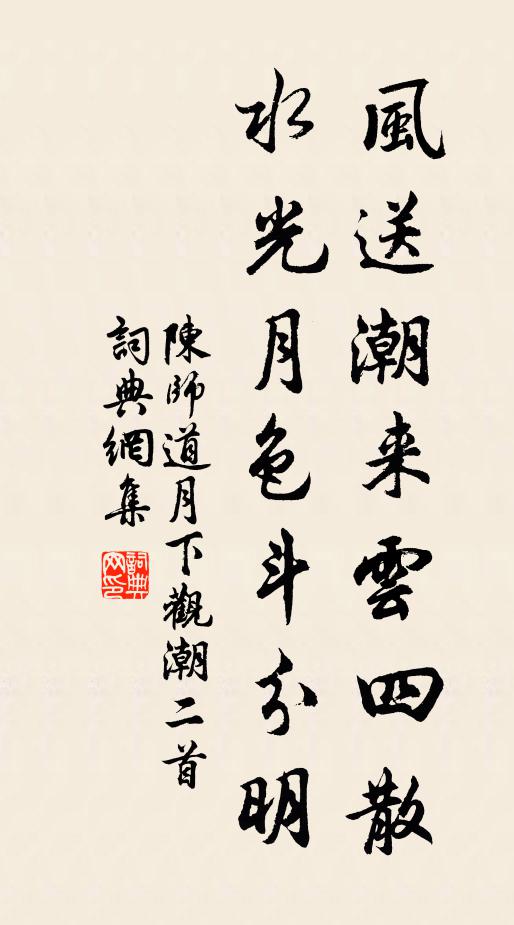 風送潮来雲四散
水光月色斗分明
陳師道月下觀潮二首
詞典網集
詞典
网印